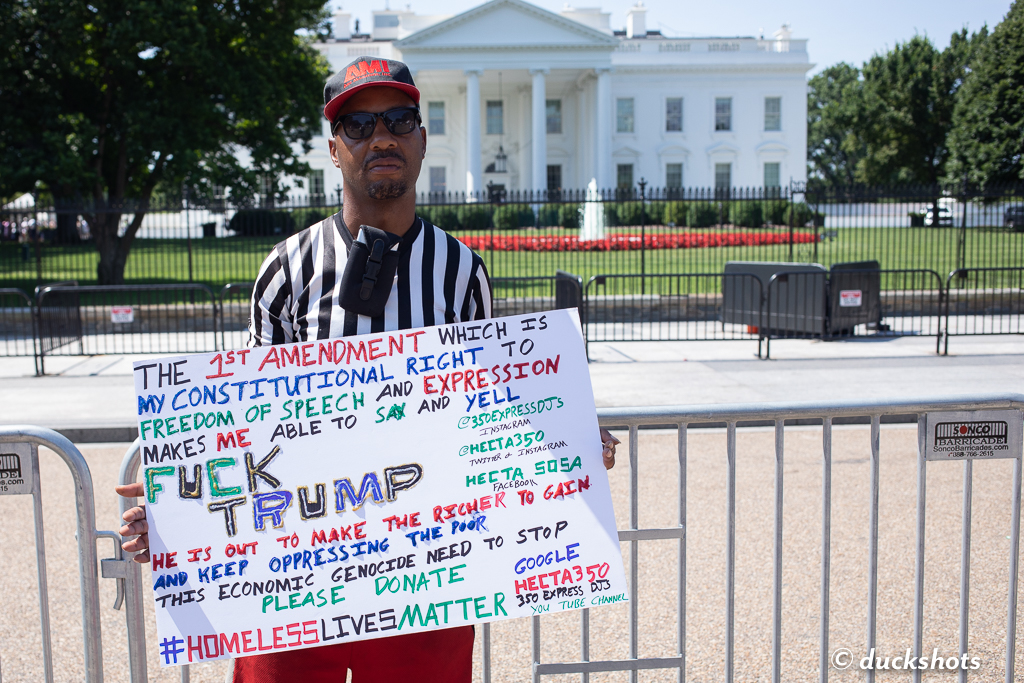 AMI
THE 1ST AMENDMENT WHICH IS
MY CONSTITUTIONAL RIGHT TO
FREEDOM OF SPEECH AND EXPRESSION
MAKES ME ABLE TO SAY AND YELL
FUCK
TRUMP
@350EXPRESSDJs
INSTAGRAM
@HECTA350
TWITTER & INSTAGRAM
HECTA SOSA
FACEBOOK
HE IS OUT TO MAKE THE RICHER TO GAIN
AND KEEP OPPRESSING THE POOR
THIS ECONOMIC GENOCIDE NEED TO STOP
PLEASE DONATE
#HOMELESSLIVESMATTER
GOOGLE
HECTA350
350 EXPRESS DJS
YOU TUBE CHANNEL
SONCO
BARRICADE
SoncoBarricades.com
888-766-2615
© duckshots